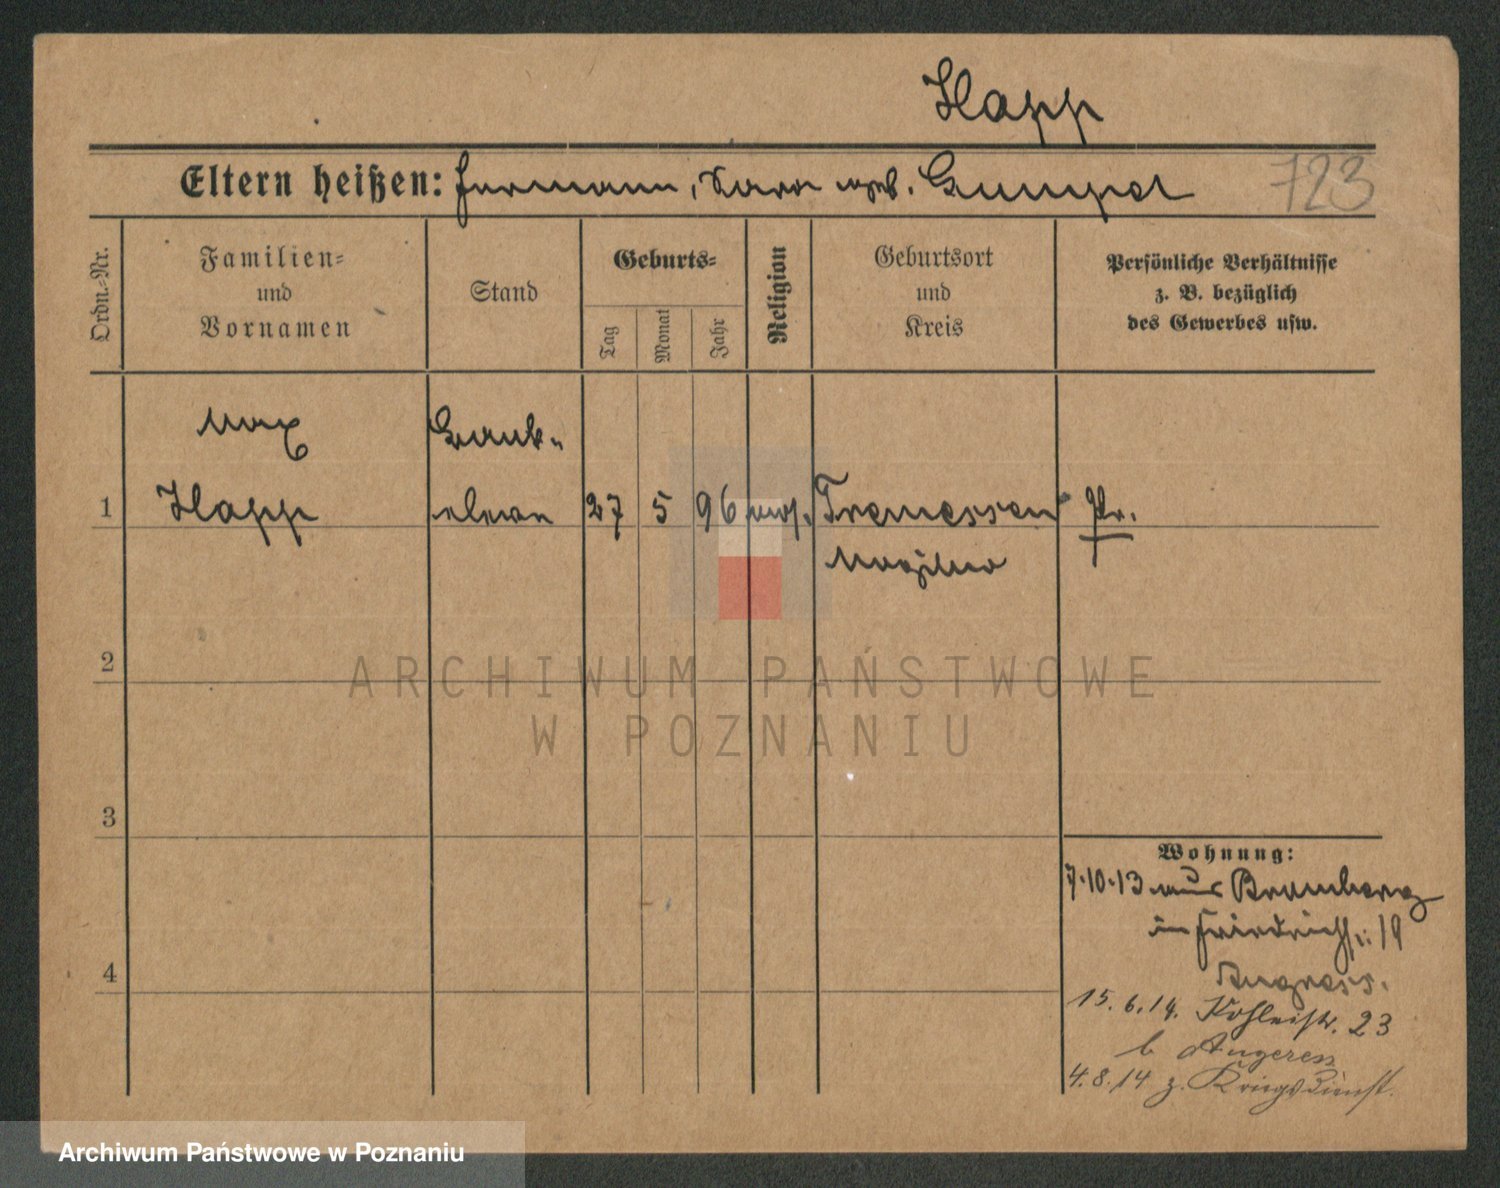 Happ
Eltern heißen: Hermann, Sara geb. Gumpel
723
Ordn.-Nr.
Familien-
und
Vornamen
Stand
Geburts-
Tag
Monat
Jahr
Religion
Geburtsort
und
Kreis
Persönliche Verhältnisse
z. B. bezüglich
des Gewerbes usw.
Max Bank-
1 Happ eleve 27 5 96 mos. Tremessen Pr.
Mogilno
2
ARCHIWUM PAŃSTWOWE
W POZNANIU
3
4
Wohnung:
7.10.13 aus Bromberg
in Friedrichstr. 19
Angress.
15.6.14. Kohleistr. 23
b Angeress
4.8.14 z. Kriegsdienst.
Archiwum Państwowe w Poznaniu